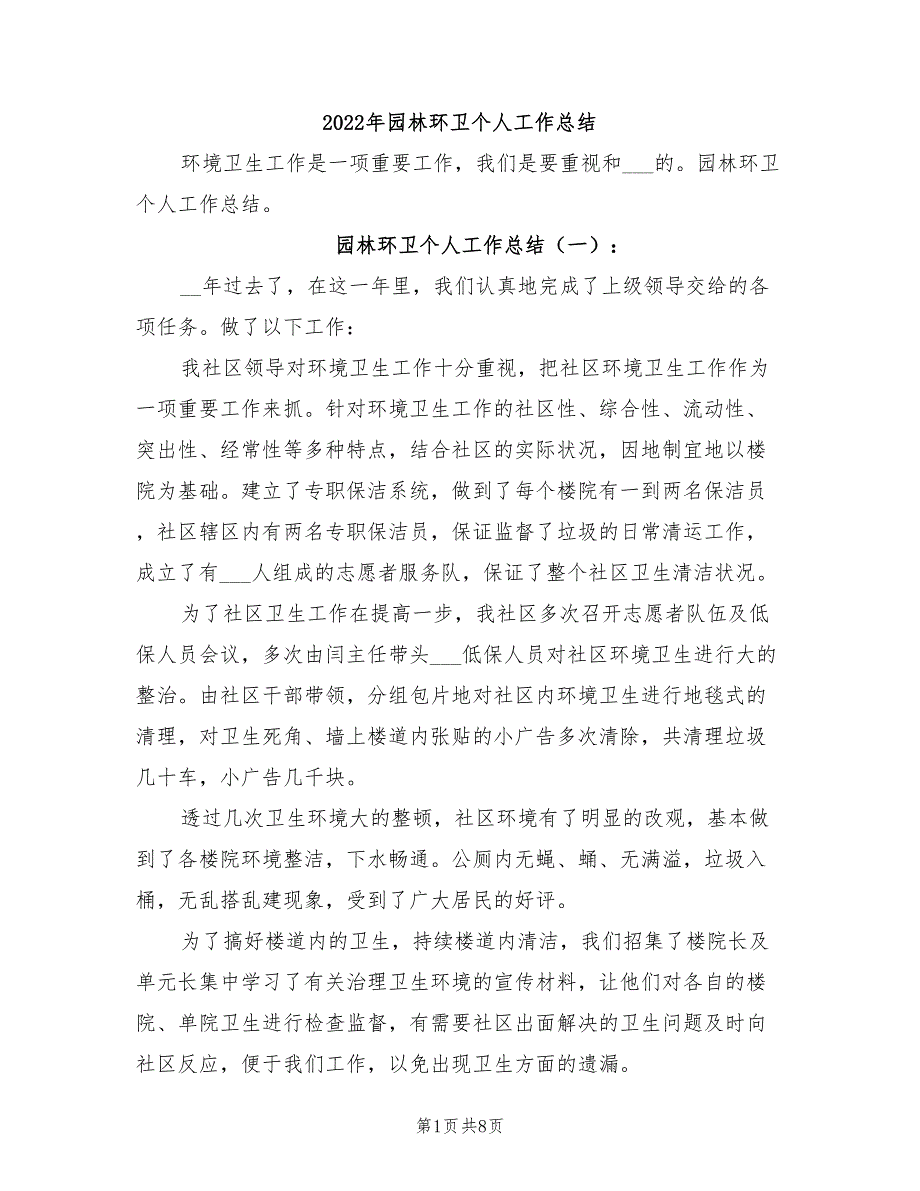 2022年园林环卫个人工作总结
环境卫生工作是一项重要工作，我们是要重视和___的。园林环卫
个人工作总结。
园林环卫个人工作总结（一）：
__年过去了，在这一年里，我们认真地完成了上级领导交给的各
项任务。做了以下工作：
我社区领导对环境卫生工作十分重视，把社区环境卫生工作作为
一项重要工作来抓。针对环境卫生工作的社区性、综合性、流动性、
突出性、经常性等多种特点，结合社区的实际状况，因地制宜地以楼
院为基础。建立了专职保洁系统，做到了每个楼院有一到两名保洁员
，社区辖区内有两名专职保洁员，保证监督了垃圾的日常清运工作，
成立了有___人组成的志愿者服务队，保证了整个社区卫生清洁状况。
为了社区卫生工作在提高一步，我社区多次召开志愿者队伍及低
保人员会议，多次由闫主任带头___低保人员对社区环境卫生进行大的
整治。由社区干部带领，分组包片地对社区内环境卫生进行地毯式的
清理，对卫生死角、墙上楼道内张贴的小广告多次清除，共清理垃圾
几十车，小广告几千块。
透过几次卫生环境大的整顿，社区环境有了明显的改观，基本做
到了各楼院环境整洁，下水畅通。公厕内无蝇、蛹、无满溢，垃圾入
桶，无乱搭乱建现象，受到了广大居民的好评。
为了搞好楼道内的卫生，持续楼道内清洁，我们招集了楼院长及
单元长集中学习了有关治理卫生环境的宣传材料，让他们对各自的楼
院、单院卫生进行检查监督，有需要社区出面解决的卫生问题及时向
社区反应，便于我们工作，以免出现卫生方面的遗漏。
第1页 共8页